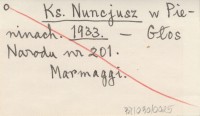 Ks. Nuncjusz w Pie-
ninach. 1933. — Głos
Narodu nr 201.
Marmaggi.